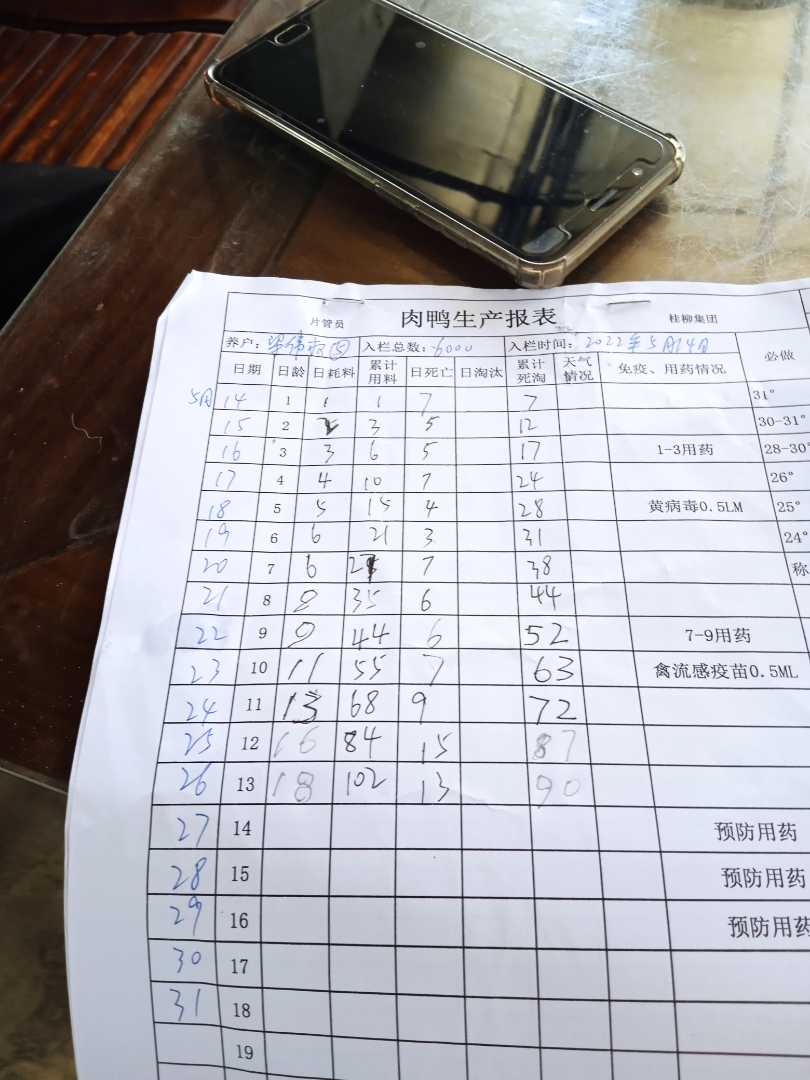 片管员 肉鸭生产报表 桂柳集团
养户: 入栏总数: 6000 入栏时间: 2022年5月14日 必做
日期 日龄 日耗料 累计用料 日死亡 日淘汰 累计死淘 天气情况 免疫、用药情况
5月 14 1 1 1 7 7 31°
15 2 2 3 5 12 30-31°
16 3 3 6 5 17 1-3用药 28-30°
17 4 4 10 7 24 26°
18 5 5 15 4 28 黄病毒0.5LM 25°
19 6 6 21 3 31 24°
20 7 6 27 7 38 称
21 8 8 35 6 44
22 9 9 44 6 52 7-9用药
23 10 11 55 7 63 禽流感疫苗0.5ML
24 11 13 68 9 72
25 12 16 84 15 87
26 13 18 102 13 90
27 14 预防用药
28 15 预防用药
29 16 预防用药
30 17
31 18
19